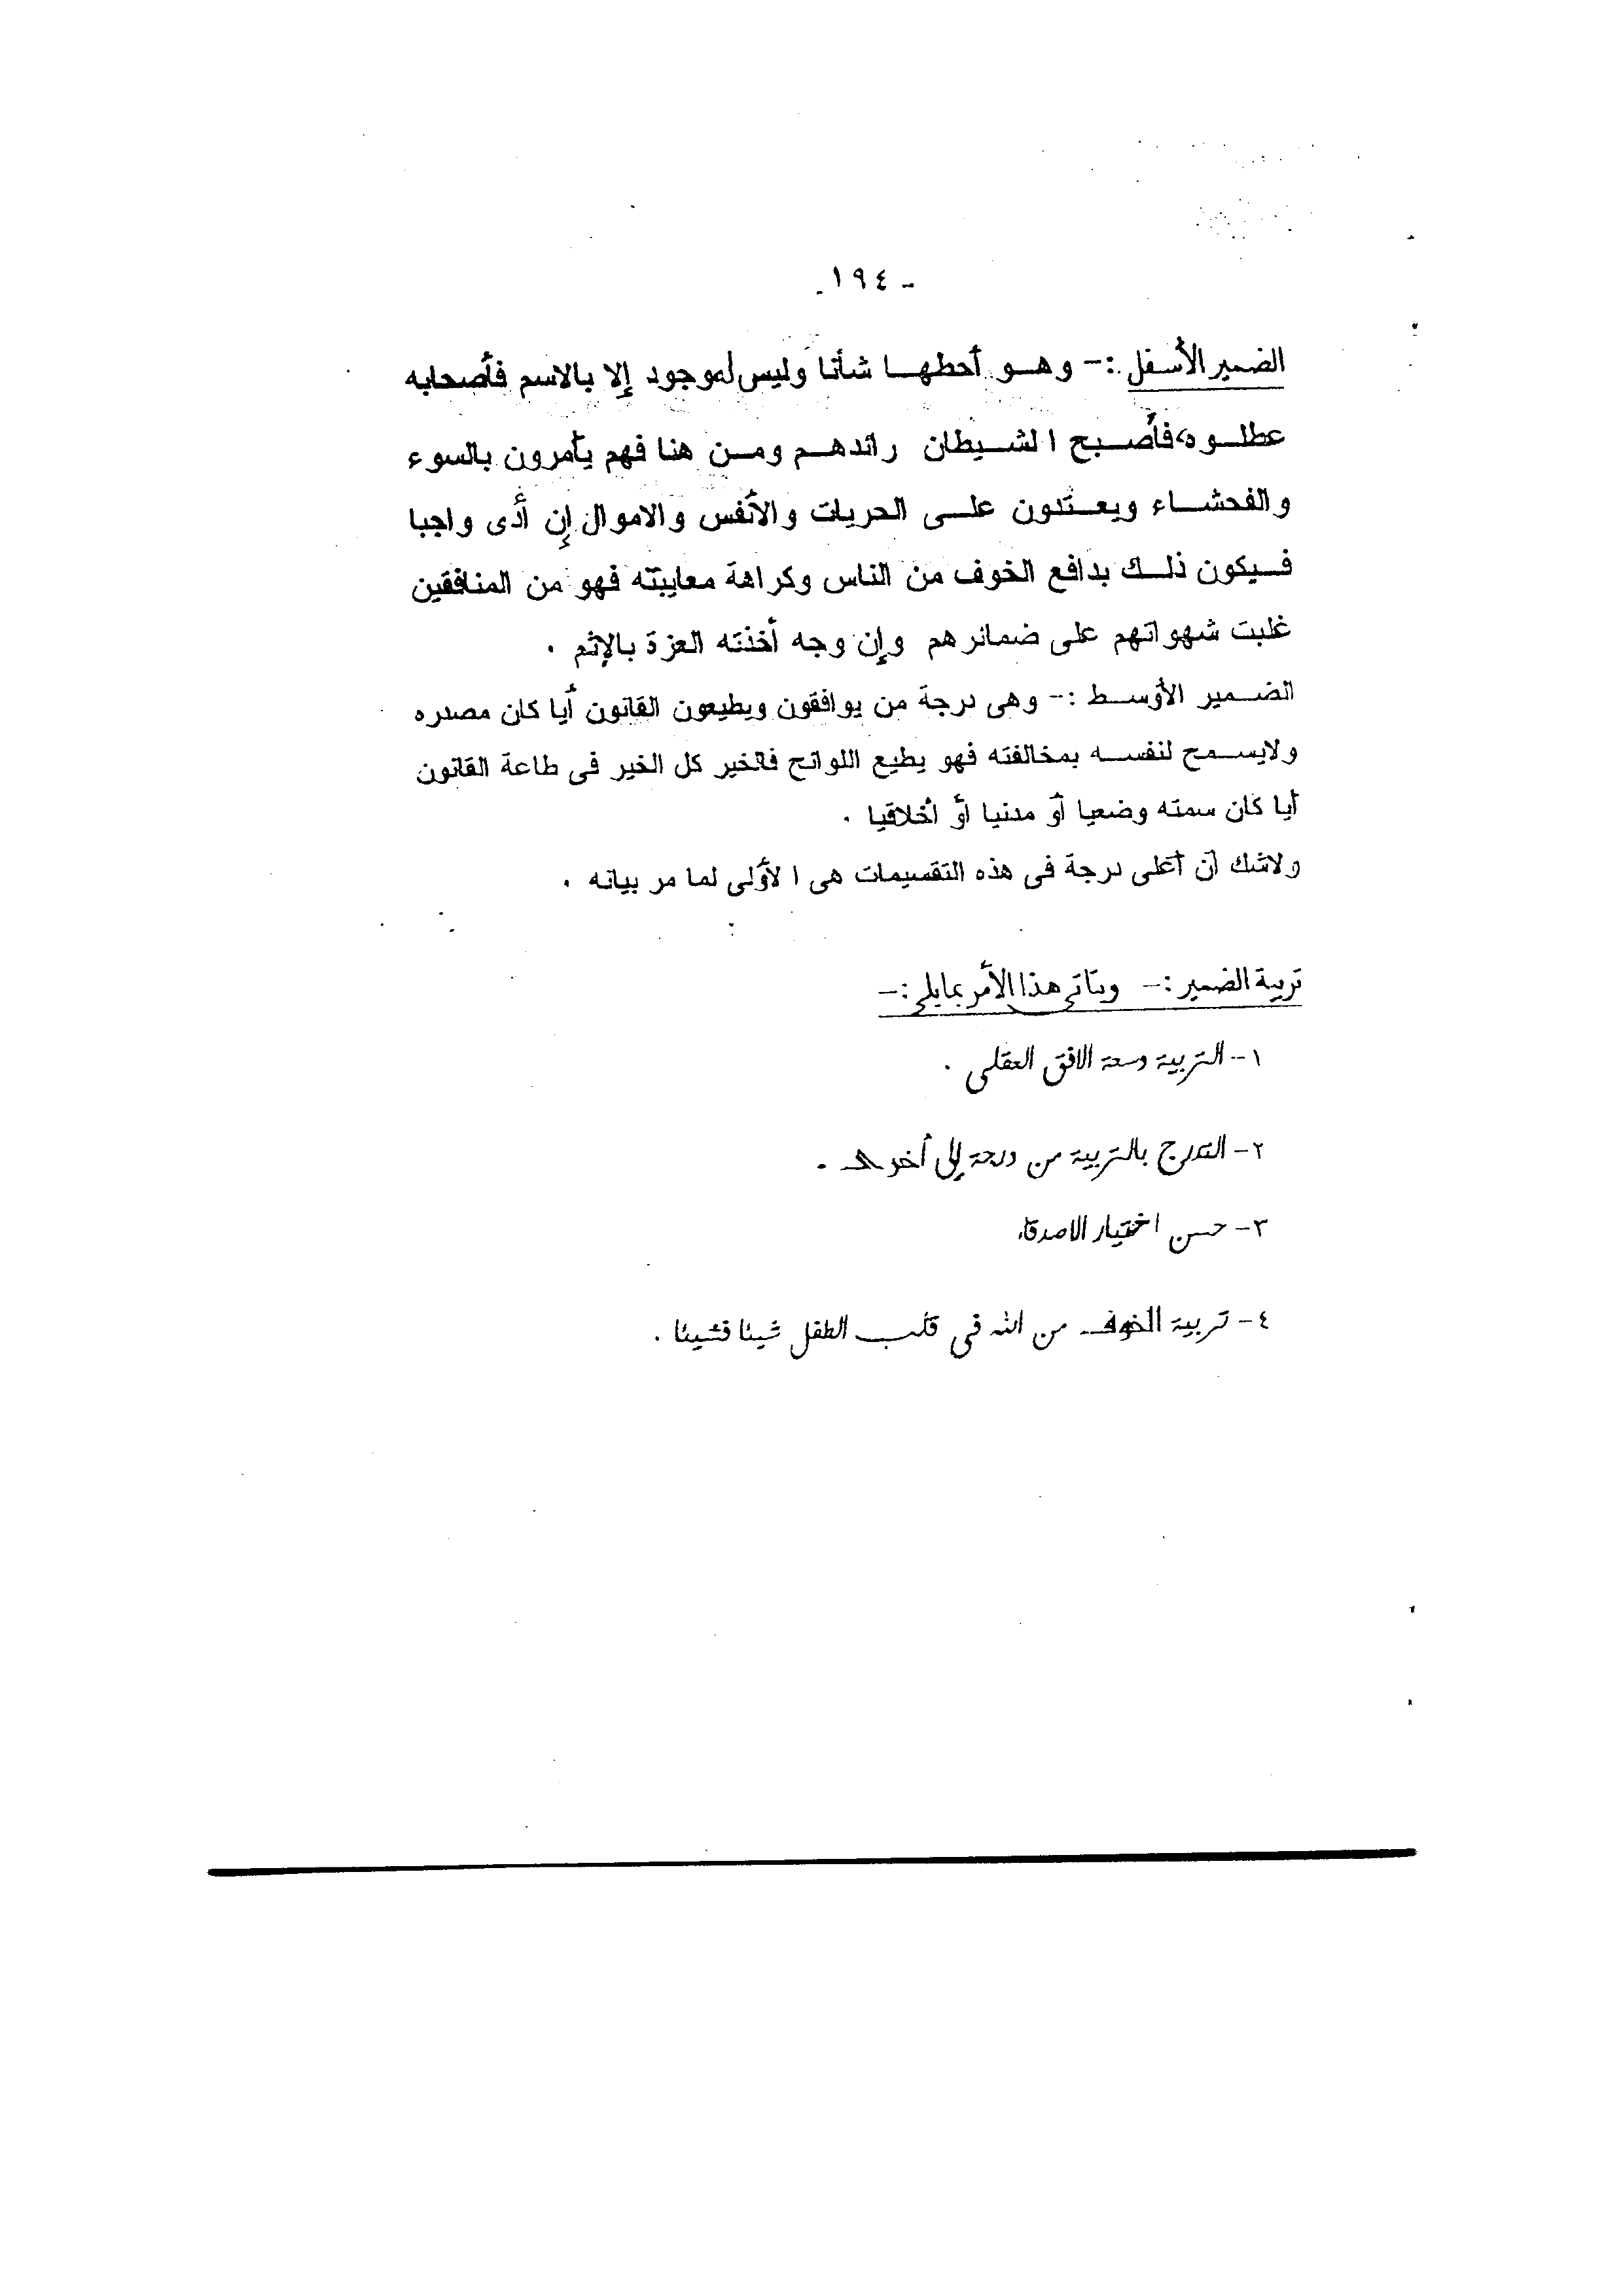 - ١٩٤ -
الضمير الأسفل :- وهو أحطها شأنا وليس له وجود إلا بالاسم فأصحابه
عطلوه، فأصبح الشيطان رائدهم ومن هنا فهم يأمرون بالسوء
والفحشاء ويعتدون على الحريات والأنفس والاموال إن أدى واجبا
فيكون ذلك بدافع الخوف من الناس وكراهة معايبته فهو من المنافقين
غلبت شهواتهم على ضمائرهم وإن وجه أخذته العزة بالإثم .
الضمير الأوسط :- وهى درجة من يوافقون ويطيعون القانون أيا كان مصدره
ولايسمح لنفسه بمخالفته فهو يطيع اللوائح فالخير كل الخير فى طاعة القانون
أيا كان سمته وضعيا أو مدنيا أو أخلاقيا .
ولاشك أن أعلى درجة فى هذه التقسيمات هى الأولى لما مر بيانه .
تربية الضمير :- ويتأتى هذا الأمر بمايلى :-
١- التربية وسعة الافق العقلى .
٢- التدرج بالتربية من درجة إلى أخرى .
٣- حسن اختيار الاصدقاء
٤- تربية الخوف من الله فى قلب الطفل شيئا فشيئا .